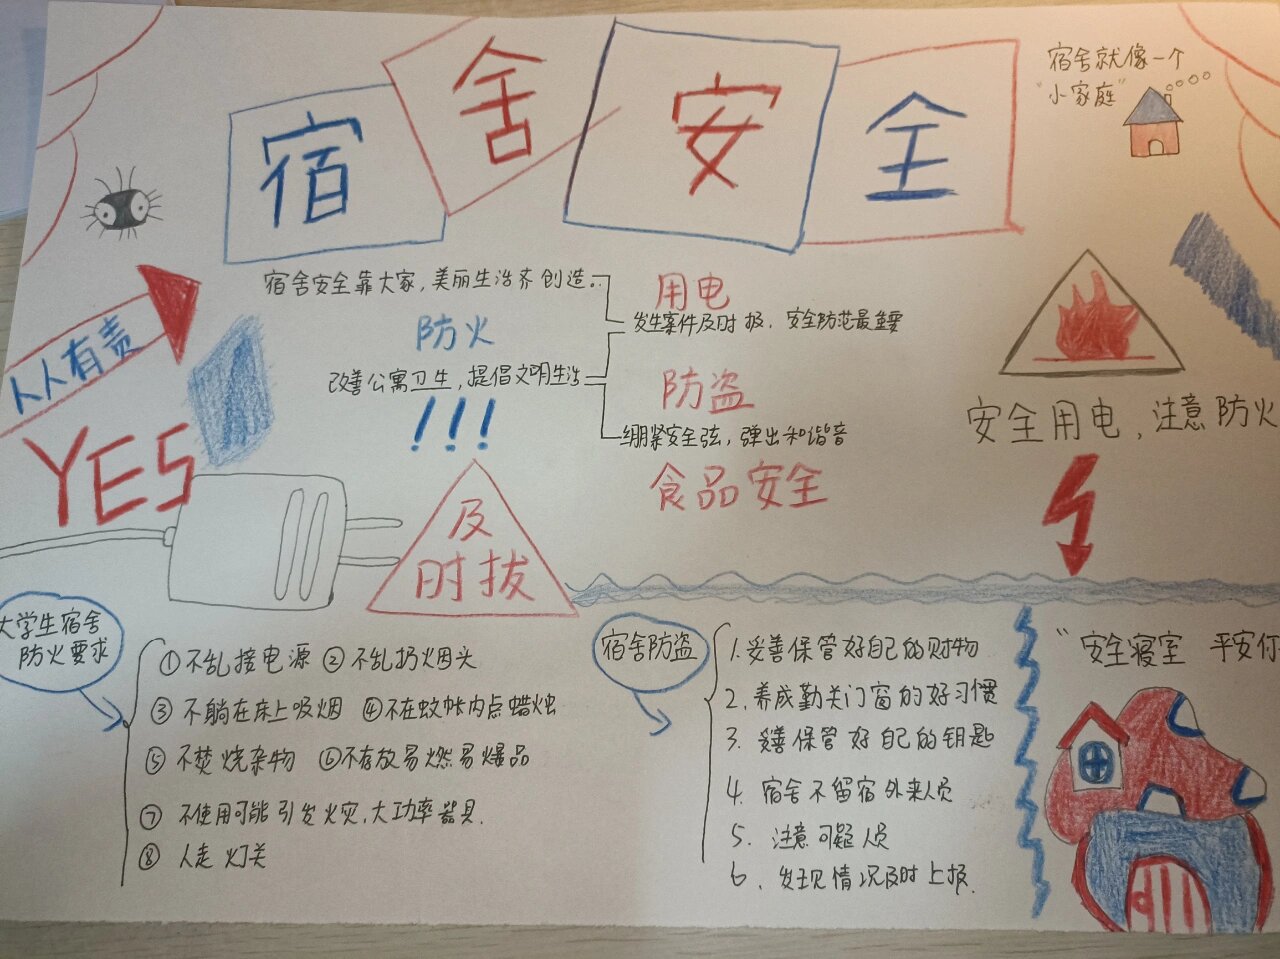 宿舍安全
宿舍就像一个
“小家庭”
人人有责
YES
宿舍安全靠大家,美丽生活齐创造..
用电
发生案件及时报,安全防范最重要
防火
改善公寓卫生,提倡文明生活
防盗
!!!
绷紧安全弦,弹出和谐音
食品安全
安全用电,注意防火
及
时拔
大学生宿舍
防火要求
①不乱接电源 ②不乱扔烟头
③不躺在床上吸烟 ④不在蚊帐内点蜡烛
⑤不焚烧杂物 ⑥不存放易燃易爆品
⑦不使用可能引发火灾,大功率器具.
⑧人走灯关
宿舍防盗
1.妥善保管好自己的财物
2.养成勤关门窗的好习惯
3.妥善保管好自己的钥匙
4.宿舍不留宿外来人员
5.注意可疑人员
6.发现情况及时上报.
“安全寝室 平安你